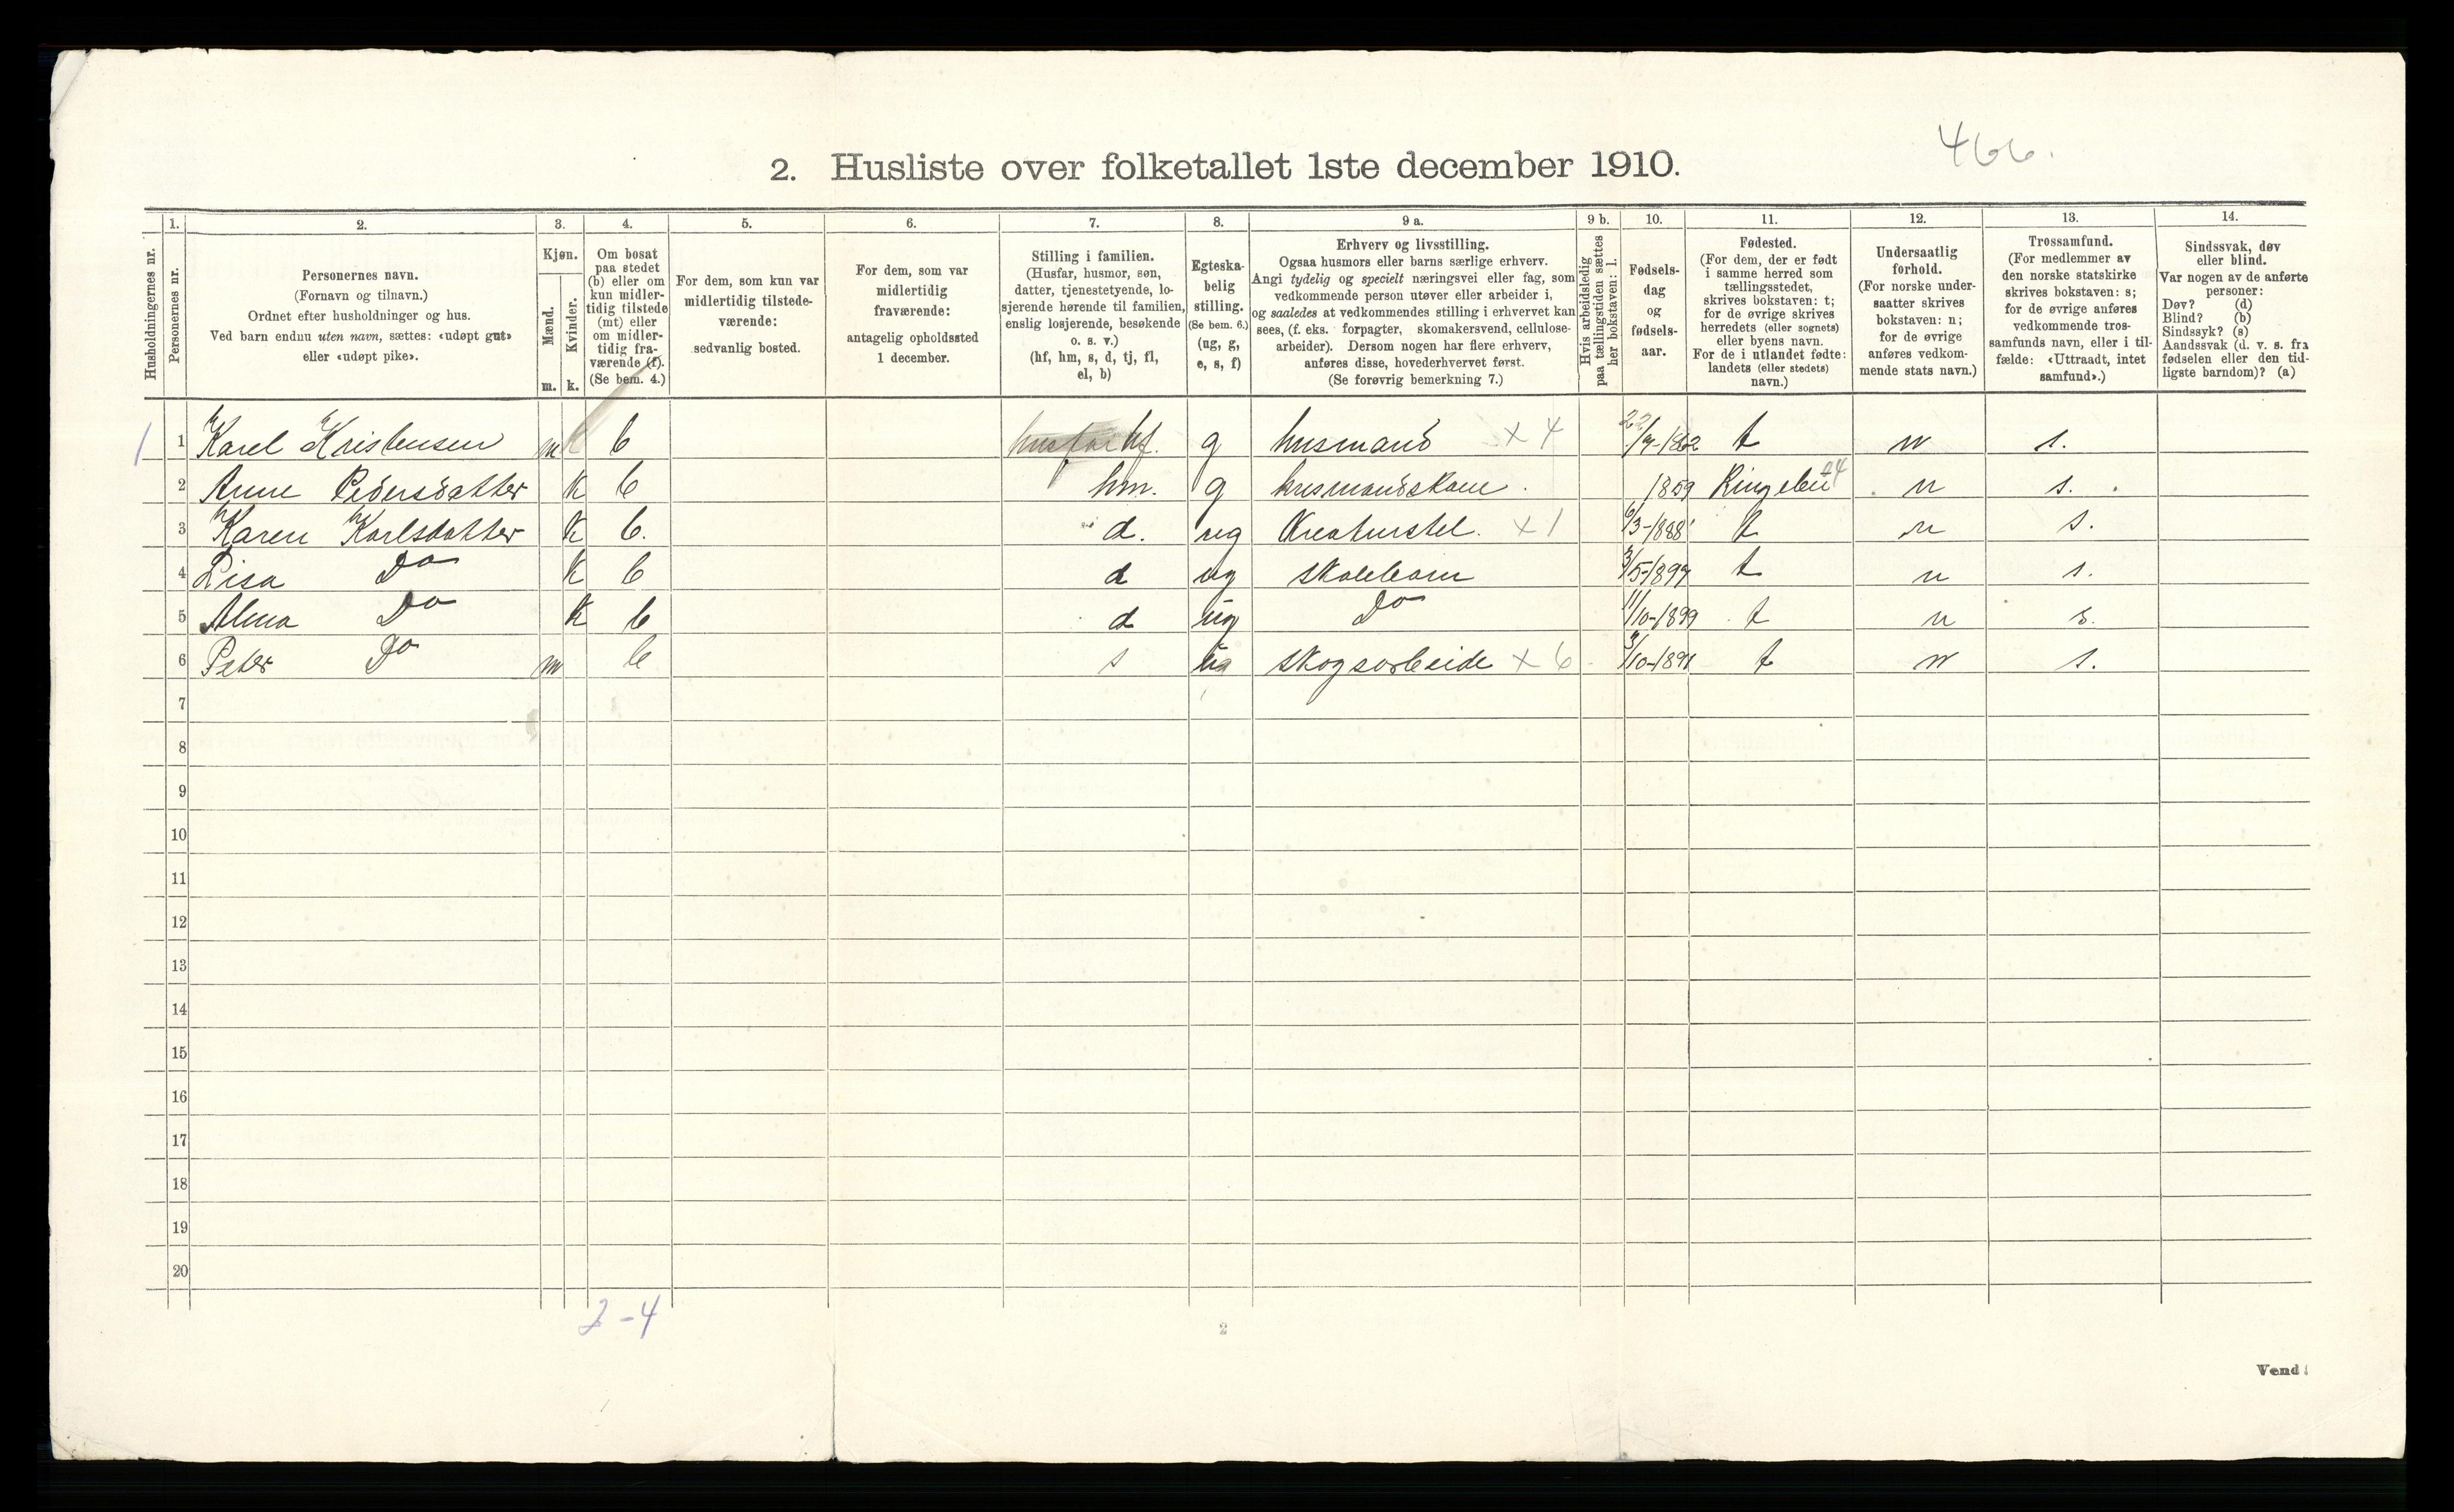 466.
2. Husliste over folketallet 1ste december 1910.
Husholdningernes nr.
1.
Personernes nr.
2.
Personernes navn.
(Fornavn og tilnavn.)
Ordnet efter husholdninger og hus.
Ved barn endnu uten navn, sættes: «udøpt gut»
eller «udøpt pike».
3.
Kjøn.
Mænd.
m.
Kvinder.
k.
4.
Om bosat
paa stedet
(b) eller om
kun midler-
tidig tilstede
(mt) eller
om midler-
tidig fra-
værende (f).
(Se bem. 4.)
5.
For dem, som kun var
midlertidig tilstede-
værende:
sedvanlig bosted.
6.
For dem, som var
midlertidig
fraværende:
antagelig opholdssted
1 december.
7.
Stilling i familien.
(Husfar, husmor, søn,
datter, tjenestetyende, lo-
sjerende hørende til familien,
enslig losjerende, besøkende
o. s. v.)
(hf, hm, s, d, tj, fl,
el, b)
8.
Egteska-
belig
stilling.
(Se bem. 6.)
(ug, g,
e, s, f)
9 a.
Erhverv og livsstilling.
Ogsaa husmors eller barns særlige erhverv.
Angi tydelig og specielt næringsvei eller fag, som
vedkommende person utøver eller arbeider i,
og saaledes at vedkommendes stilling i erhvervet kan
sees, (f. eks. forpagter, skomakersvend, cellulose-
arbeider). Dersom nogen har flere erhverv,
anføres disse, hovederhvervet først.
(Se forøvrig bemerkning 7.)
9 b.
Hvis arbeidsledig
paa tællingstiden sættes
her bokstaven: l.
10.
Fødsels-
dag
og
fødsels-
aar.
11.
Fødested.
(For dem, der er født
i samme herred som
tællingsstedet,
skrives bokstaven: t;
for de øvrige skrives
herredets (eller sognets)
eller byens navn.
For de i utlandet fødte:
landets (eller stedets)
navn.)
12.
Undersaatlig
forhold.
(For norske under-
saatter skrives
bokstaven: n;
for de øvrige
anføres vedkom-
mende stats navn.)
13.
Trossamfund.
(For medlemmer av
den norske statskirke
skrives bokstaven: s;
for de øvrige anføres
vedkommende tros-
samfunds navn, eller i til-
fælde: «Uttraadt, intet
samfund».)
14.
Sindssvak, døv
eller blind.
Var nogen av de anførte
personer:
Døv? (d)
Blind? (b)
Sindssyk? (s)
Aandssvak (d. v. s. fra
fødselen eller den tid-
ligste barndom)? (a)
1 1 Karel Kristensen m b husfar hf. g husmand x 4 22/9-1862 t n s.
2 Anne Pedersdatter k b hm. g husmandskone. 1859 Ringebu 24 n s.
3 Karen Karlsdatter k b. d. ug Kreaturstel. x 1 6/3-1888 t n s.
4 Lisa Do k b d ug skolebarn 3/5-1897 t n s.
5 Alma Do k b d ug Do 11/10-1899 t n s.
6 Peter Do m b s ug skogsarbeide x 6 3/10-1891 t n s.
7
8
9
10
11
12
13
14
15
16
17
18
19
20
2-4
2
Vend!